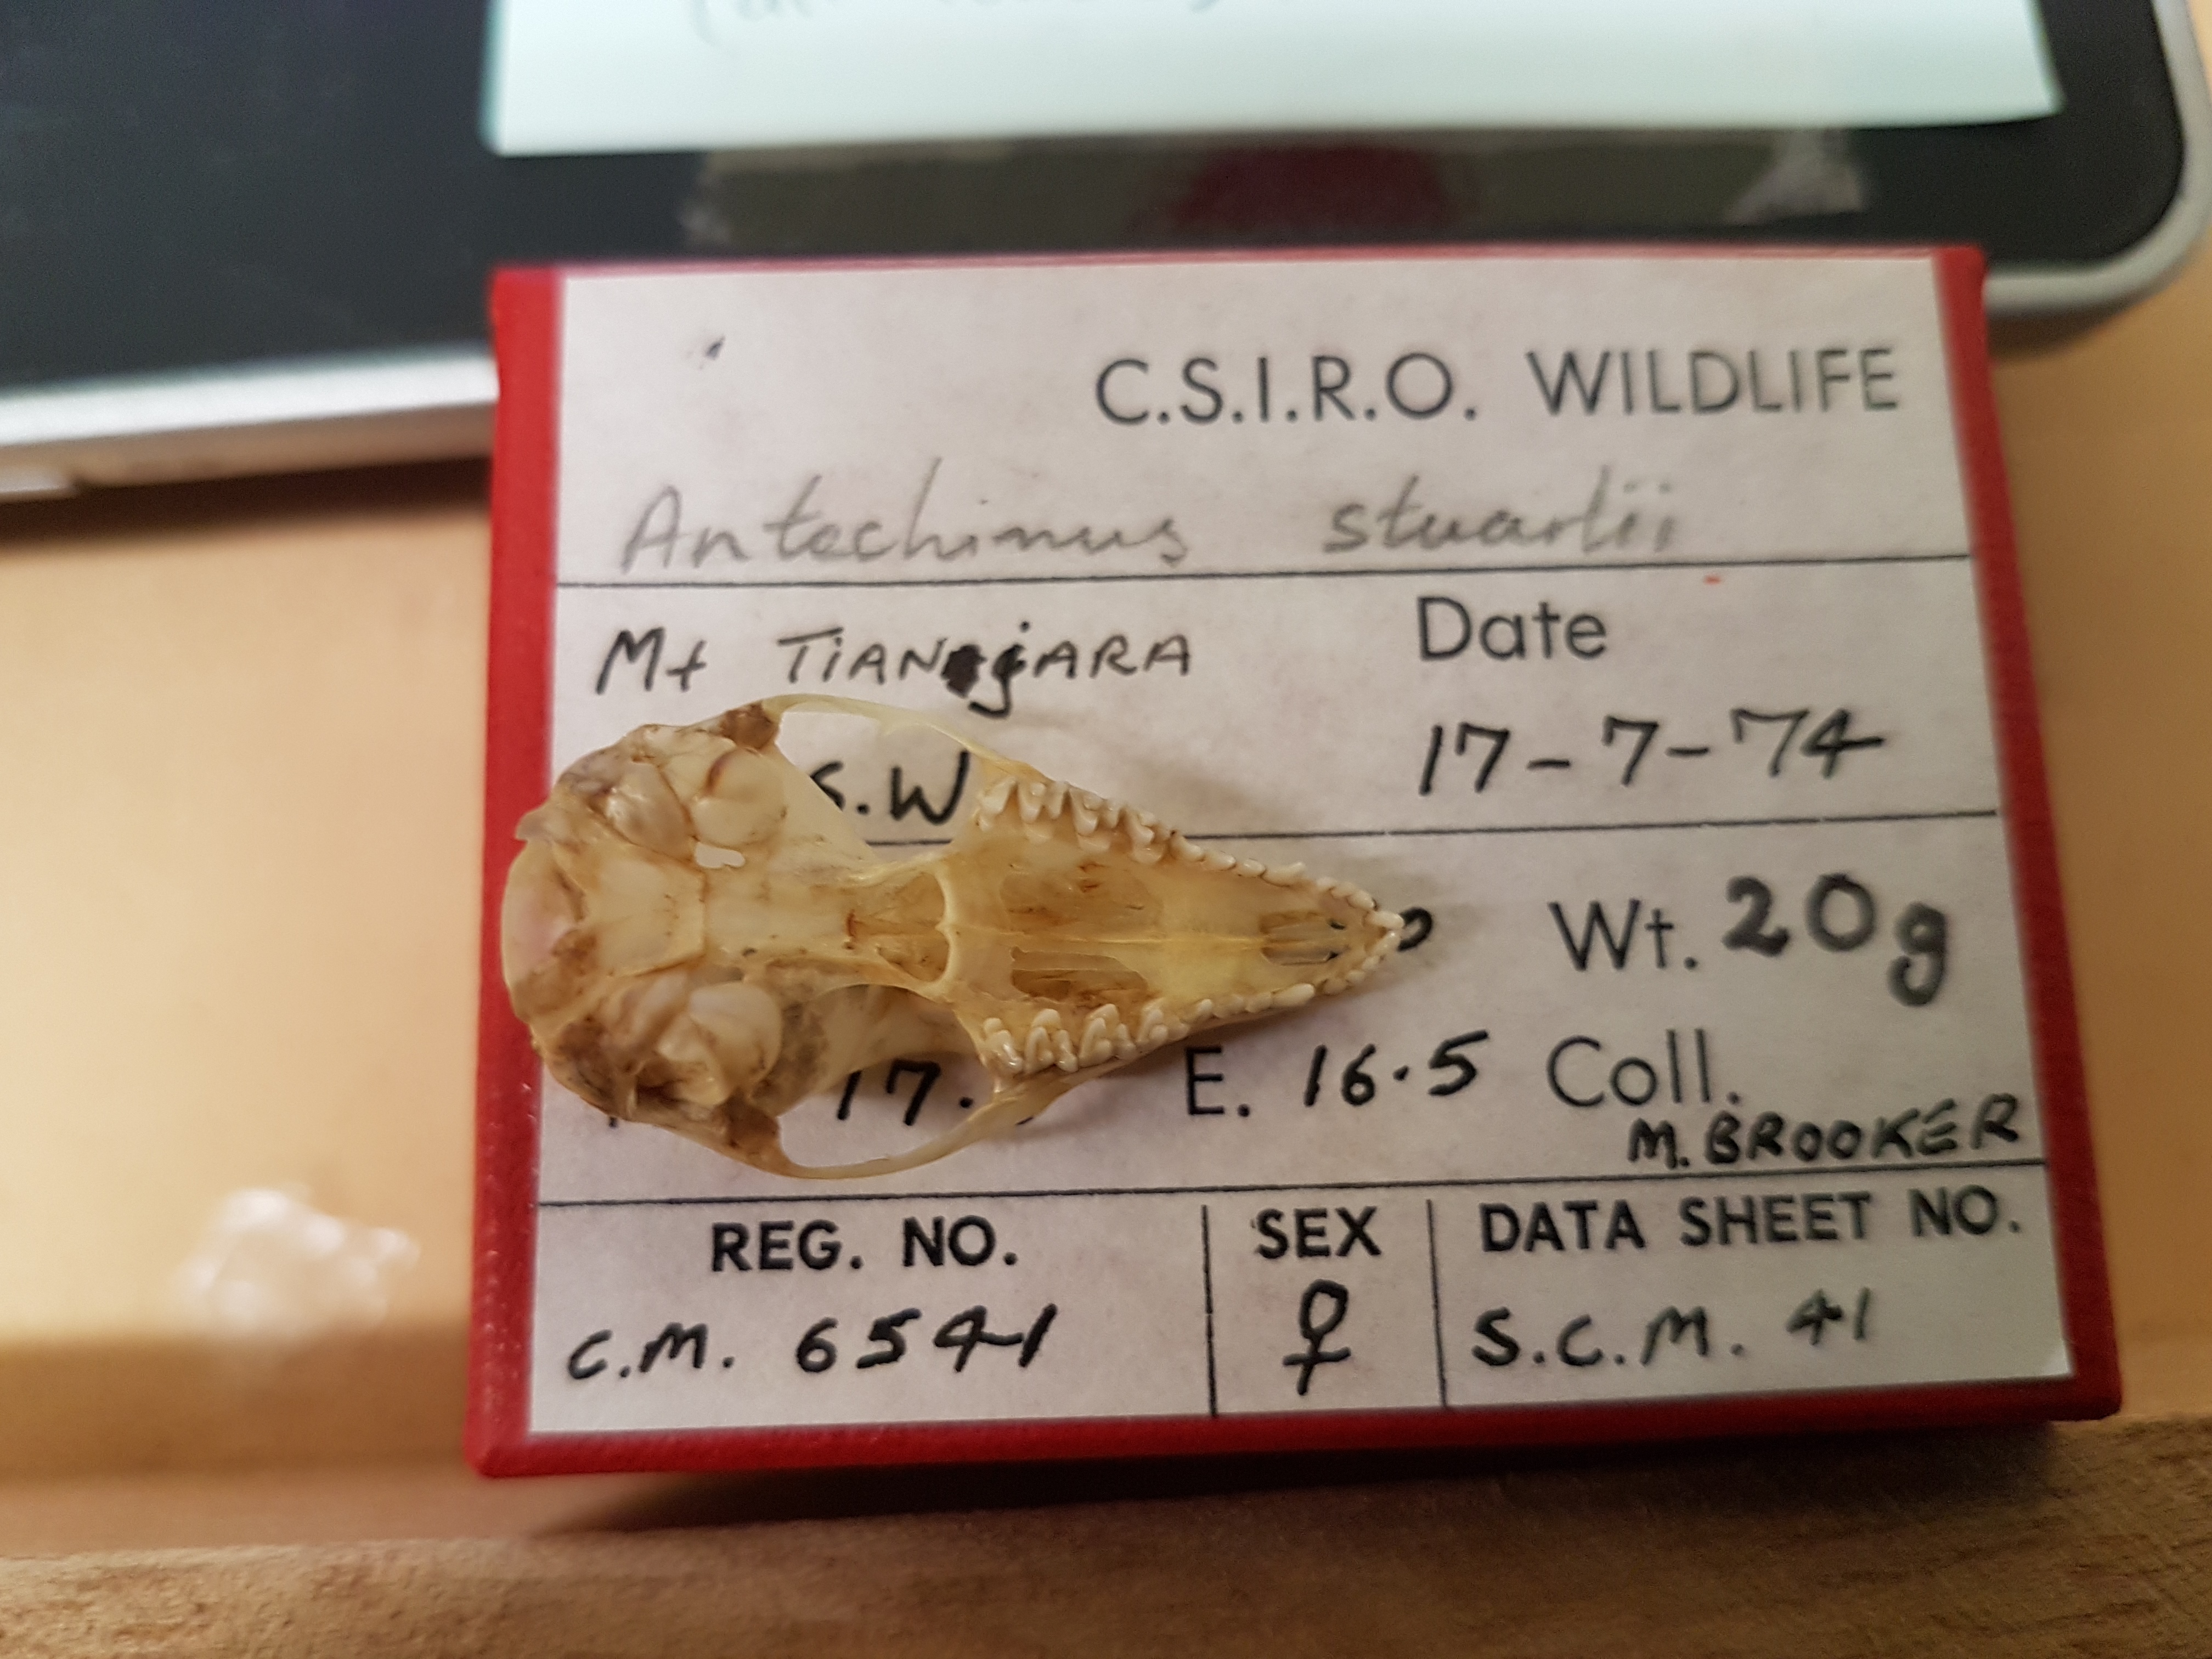 C.S.I.R.O. WILDLIFE
Antechinus stuartii
Mt TIANJARA
Date
S.W
17-7-74
Wt. 20g
17.
E. 16.5
Coll.
M. BROOKER
REG. NO.
SEX
DATA SHEET NO.
C.M. 6541
♀
S.C.M. 41